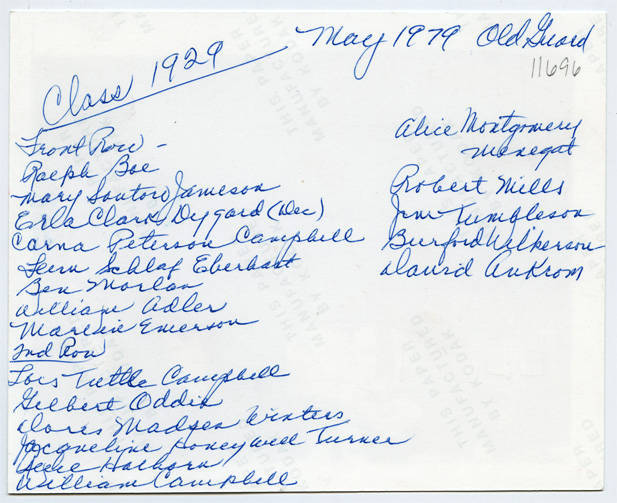 May 1979 Old Guard
11696
Class 1929
Front Row -
Ralph Boe
Mary Santoro Jameson
Erla Clark Dyggard (Dec)
Carna Peterson Campbell
Fern Schlaf Eberhart
Ben Morlan
William Adler
Maxine Emerson
2nd Row
Lois Tuttle Campbell
Gilbert Oddie
Doris Madsen Winters
Jacqueline Honeywell Turner
William Campbell
Alice Montgomery
Menegat
Robert Mills
Jim Tumbleson
Burford Wilkerson
David Ankrom